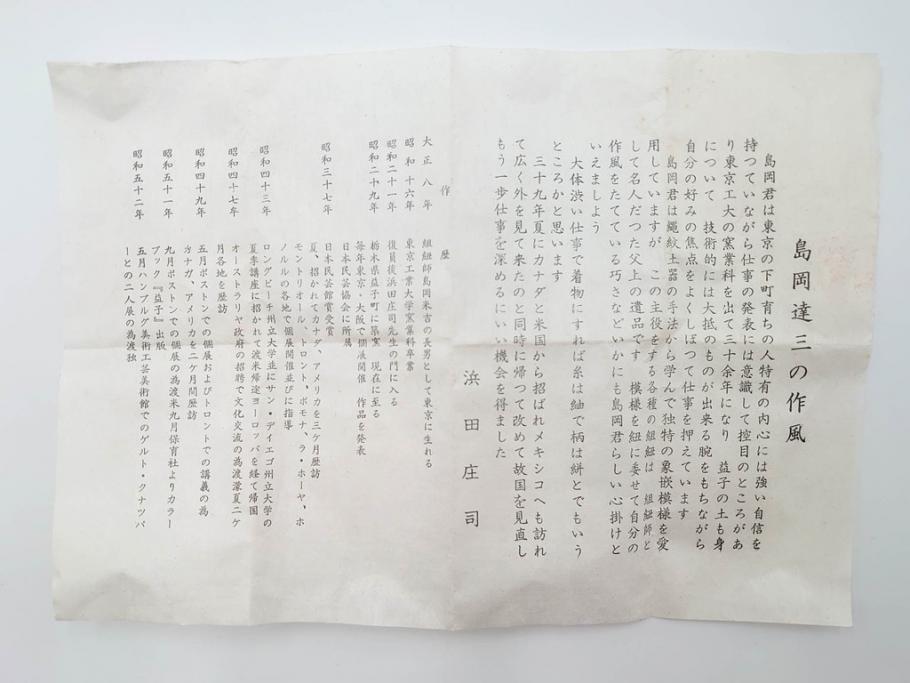 島岡達三の作風
島岡君は東京の下町育ちの人特有の内心には強い自信を
持つていながら仕事の発表には意識して控目のところがあ
り東京工大の窯業科を出て三十余年になり 益子の土も身
について 技術的には大抵のものが出来る腕をもちながら
自分の好みの焦点をよくしぼつて仕事を押えています
島岡君は縄紋土器の手法から学んで独特の象嵌模様を愛
用していますが この主役をする各種の組紐は 組紐師と
して名人だつた父上の遺品です 模様を紐に委せて自分の
作風をたてている巧さなどいかにも島岡君らしい心掛けと
いえましよう
大体渋い仕事で着物にすれば糸は紬で柄は絣とでもいう
ところかと思います
三十九年夏にカナダと米国から招ばれメキシコへも訪れ
て広く外を見て来たのと同時に帰つて改めて故国を見直し
もう一歩仕事を深めるにいい機会を得ました
浜田庄司
作歴
大正八年 組紐師島岡米吉の長男として東京に生れる
昭和十六年 東京工業大学窯業科卒業
昭和二十一年 復員後浜田庄司先生の門に入る
昭和二十九年 栃木県益子町に築窯 現在に至る
毎年東京・大阪で個展開催 作品を発表
日本民芸協会に所属
昭和三十七年 日本民芸館賞受賞
夏、招かれてカナダ、アメリカを三ケ月歴訪
モントリオール、トロント、ポモナ、ラ・ホーヤ、ホ
ノルルの各地で個展開催並びに指導
昭和四十三年 ロングビーチ州立大学並にサン・デイエゴ州立大学の
夏季講座に招かれて渡米帰途ヨーロッパを経て帰国
昭和四十七年 オーストラリヤ政府の招聘で文化交流の為渡濠夏二ケ
月各地を歴訪
昭和四十九年 五月ボストンでの個展およびトロントでの講義の為
カナダ、アメリカを二ケ月間歴訪
昭和五十一年 九月ボストンでの個展の為渡米九月保育社よりカラー
ブック『益子』出版
昭和五十二年 五月ハンブルグ美術工芸美術館でのゲルト・クナツパ
ーとの二人展の為渡独